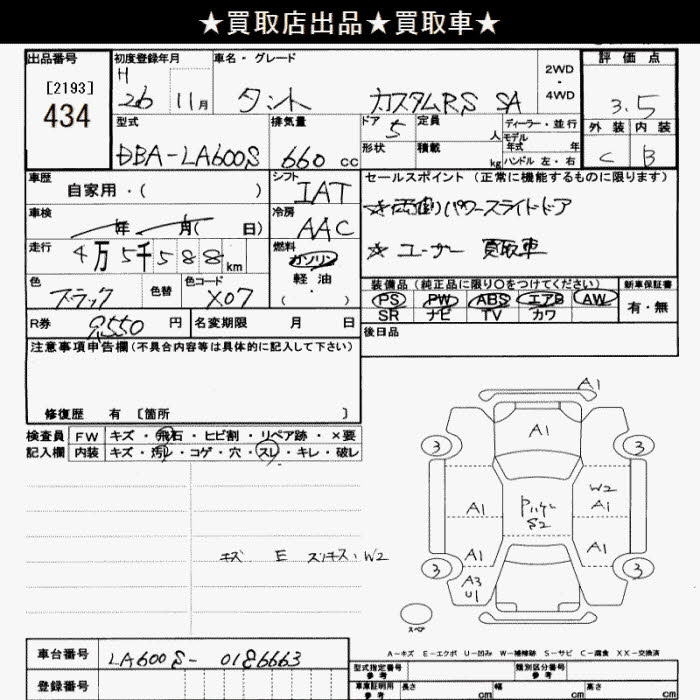 ★買取店出品★買取車★
出品番号 初度登録年月 車名・グレード 評価点
[2193] H 2WD
434 26 11月 タント カスタムRS SA 4WD 3.5
型式 排気量 ドア 定員 ディーラー・並行 外装 内装
5 人 モデル年式 年
DBA-LA600S 660 cc 形状 積載 kg ハンドル 左・右 C B
車歴 シフト セールスポイント(正常に機能するものに限ります)
自家用・( ) IAT
☆両側パワースライドドア
車検 年 月( 日) 冷房 AAC
☆ユーザー 買取車
走行 4万5千588km 燃料 ガソリン
軽油
( ・ )
色 色替 色コード 装備品(純正品に限り○をつけてください) 新車保証書
ブラック X07 PS PW ABS エアB AW 有・無
SR ナビ TV カワ
R券 8550円 名変期限 月 日 後日品
注意事項申告欄(不具合内容等は具体的に記入して下さい)
修復歴 有 [箇所 ]
検査員 FW キズ・飛石・ヒビ割・リペア跡・×要
記入欄 内装 キズ・汚レ・コゲ・穴・スレ・キレ・破レ
A1
A1
3 3
W2
A1 A1
S2
A1 A1
キズ E スリキズ・W2
3 3
A3
U1
スペア
A−キズ E−エクボ U−凹み W−補修跡 S−サビ C−腐食 XX−交換済
車台番号 LA600S-0186663
型式指定番号 参考 類別区分番号 参考
登録番号 車庫証明用 参考 長さ cm 幅 cm 高さ cm